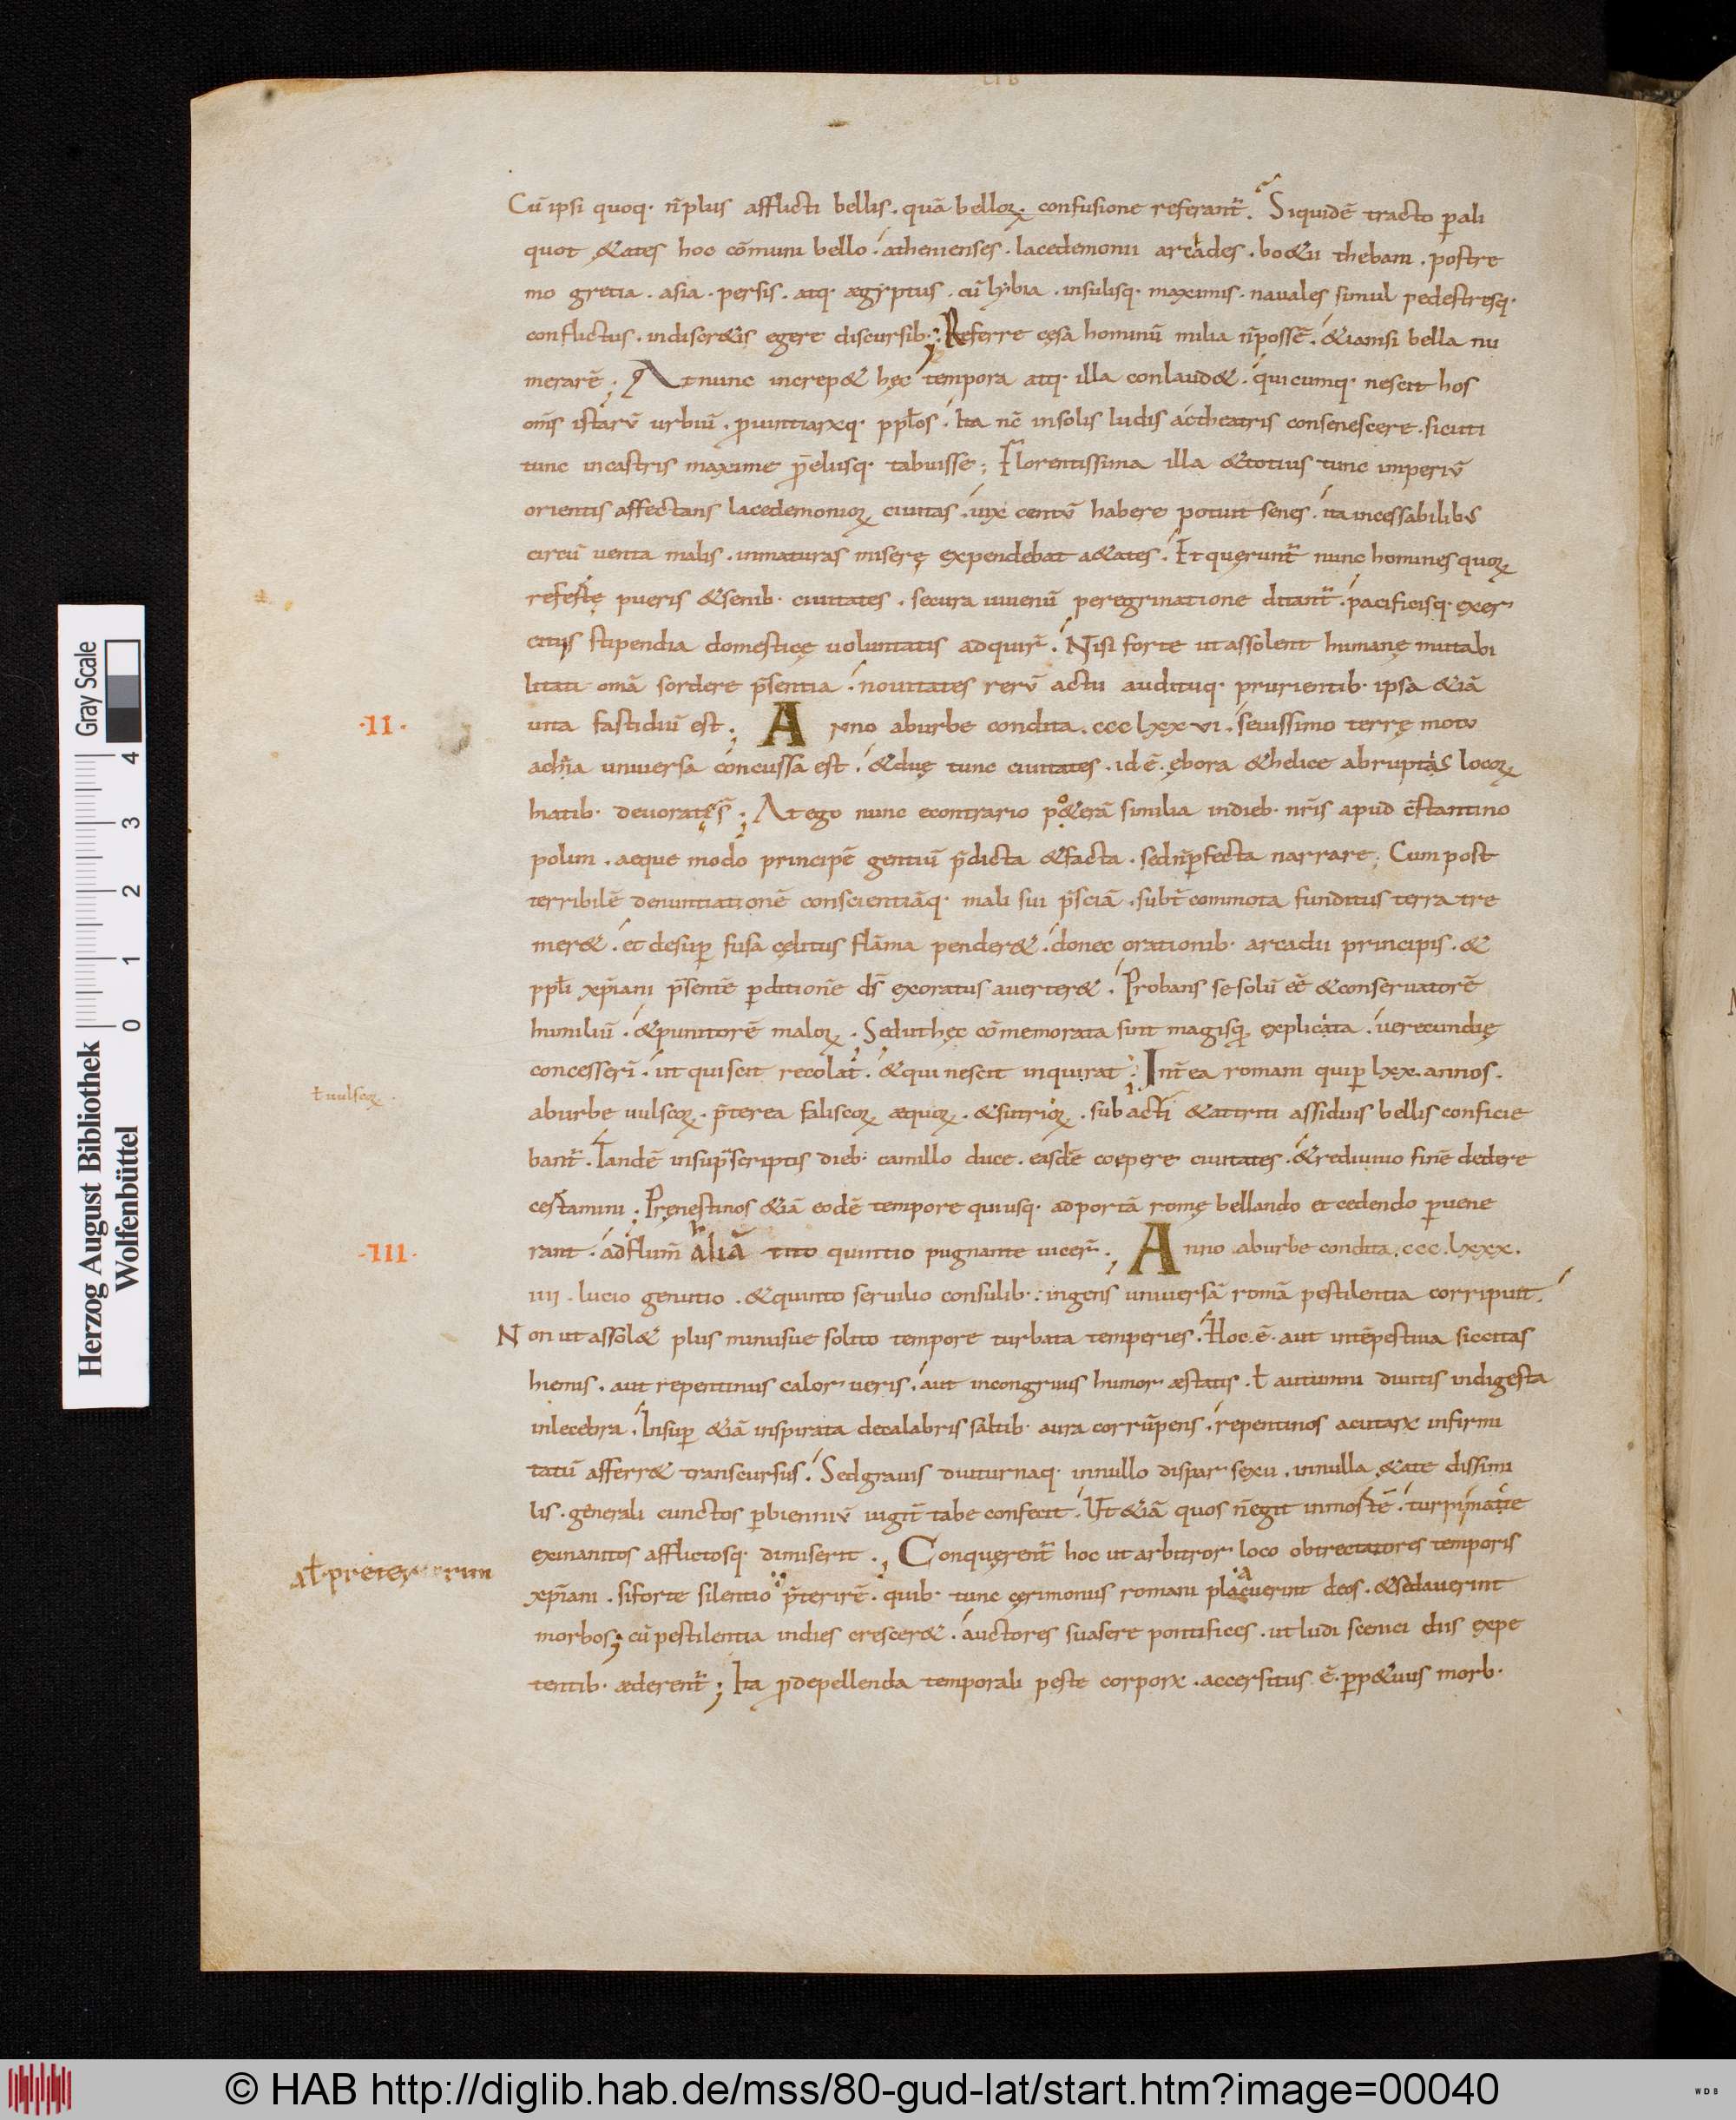 Cū ipsi quoq· n̄ plus afflicti bellis . quā belloꝝ . confusione referant̄ . Siquidē tracto ꝑ ali
quot ętates hoc cōmuni bello . athenienses . lacedemonii arcades . boetii thebani . postre
mo gretia . asia . persis . atq· ægyptus . cū lybia . insulisq· maximis . navales simul pedestresq·
conflictus . indiscretis egere discursib· ; Referre cęsa hominū milia n̄ possē . etiamsi bella nu
merarē ; At nunc increpet hęc tempora atq· illa conlaudet . quicumq· nescit hos
om̄s istarū urbiū . provintiarꝝq· ppl̄os . Ita nc̄ in solis ludis ac theatris consenescere . sicuti
tunc in castris maxime p̄eliisq· tabuisse ; Florentissima illa & totius tunc imperiū
orientis affectans lacedemonioꝝ civitas . vix centū habere potuit senes . ita incessabilibus
circū venta malis . inmaturas miserę expendebat aetates . Et quęrunt̄ nunc homines quoꝝ
refertę pueris & senib· civitates . secura iuvenū peregrinatione ditant̄ . pacificisq· exer
citiis stipendia domesticę voluntatis adquir̄ . Nisi forte ut assolent humanę mutabi
litati om̄ā sordere p̄sentia . novitates rerū actu audituq· prurientib· ipsa etiā
vita fastidiū est ;
·II·
Anno ab urbe condita . ccc lxx vi . sevissimo terrę motu
achaia universa concussa est . & duę tunc civitates . id ē . ębora & helice abruptis locoꝝ
hiatib· devoratę s̄ ; At ego nunc econtrario poterā similia in dieb· nr̄is apud c̄stantino
polim . aeque modo principē gentiū p̄dicta & facta . sed n̄ ꝑfecta narrare ; Cum post
terribilē denuntiationē conscientiāq· mali sui p̄sciā . subt̄ commota funditus terra tre
meret . et desuꝑ fusa cęlitus flāma penderet . donec orationib· arcadii principis . &
ppl̄i xp̄iani p̄sentē ꝑditionē d̄s exoratus averteret . Probans se solū eē & conservatorē
humiliū . & punitorē maloꝝ ; Sed ut hęc cōmemorata sint magisq̄ explicita . verecundię
concesserī . ut qui scit recolat . & qui nescit inquirat ; Int̄ea romani qui ꝑ lxx annos .
ł vulscoꝝ .
ab urbe vulscoꝝ . p̄terea faliscoꝝ æquoꝝ . & sutrioꝝ . subacti & attriti assiduis bellis conficie
bant̄ . Tandē in sup̄scriptis dieb· camillo duce . easdē coepere civitates . & redivivo finē dedere
certamini ; Pręnestinos etiā eodē tempore qui usq· ad portā romę bellando et cedendo ꝑvene
rant . ad flum̄ aliā tito quintio pugnante vicer̄ ;
·III·
Anno ab urbe condita . ccc . lxxx .
iiii . lucio genutio . & quinto servilio consulib· : ingens universā romā pestilentia corripuit .
Non ut assolet plus minusve solito tempore turbata temperies . Hoc . ē . aut intēpestiva siccitas
hiemis . aut repentinus calor veris . aut incongruus humor æstatis . ł autumni divitis indigesta
inlecebra . Insuꝑ etiā inspirata de calabris saltib· aura corrūpens . repentinos acutarꝝ infirmi
tatū afferret transcursus . Sed gravis diuturnaq· in nullo dispar sexu . in nulla ętate dissimi
lis . generali cunctos ꝑ bienniū iugit̄ tabe confecit . Ut etiā quos n̄ egit in mortē . turpi macie
exinanitos afflictosq· dimiserit ; Conquęrent̄ hoc ut arbitror loco obtrectatores temporis
xp̄iani . si forte silentio p̄terirē . quib· tunc cęrimoniis romani placaverint deos . & sedaverint
morbos ; cū pestilentia indies cresceret . auctores suasere pontifices . ut ludi scenici diis expe
tentib· æderent̄ ; Ita ꝓ depellenda temporali peste corporꝝ . accersitus ē . ꝑpetuus morb·
Herzog August Bibliothek
Wolfenbüttel
0 1 2 3 4
Gray Scale
© HAB http://diglib.hab.de/mss/80-gud-lat/start.htm?image=00040
WDB